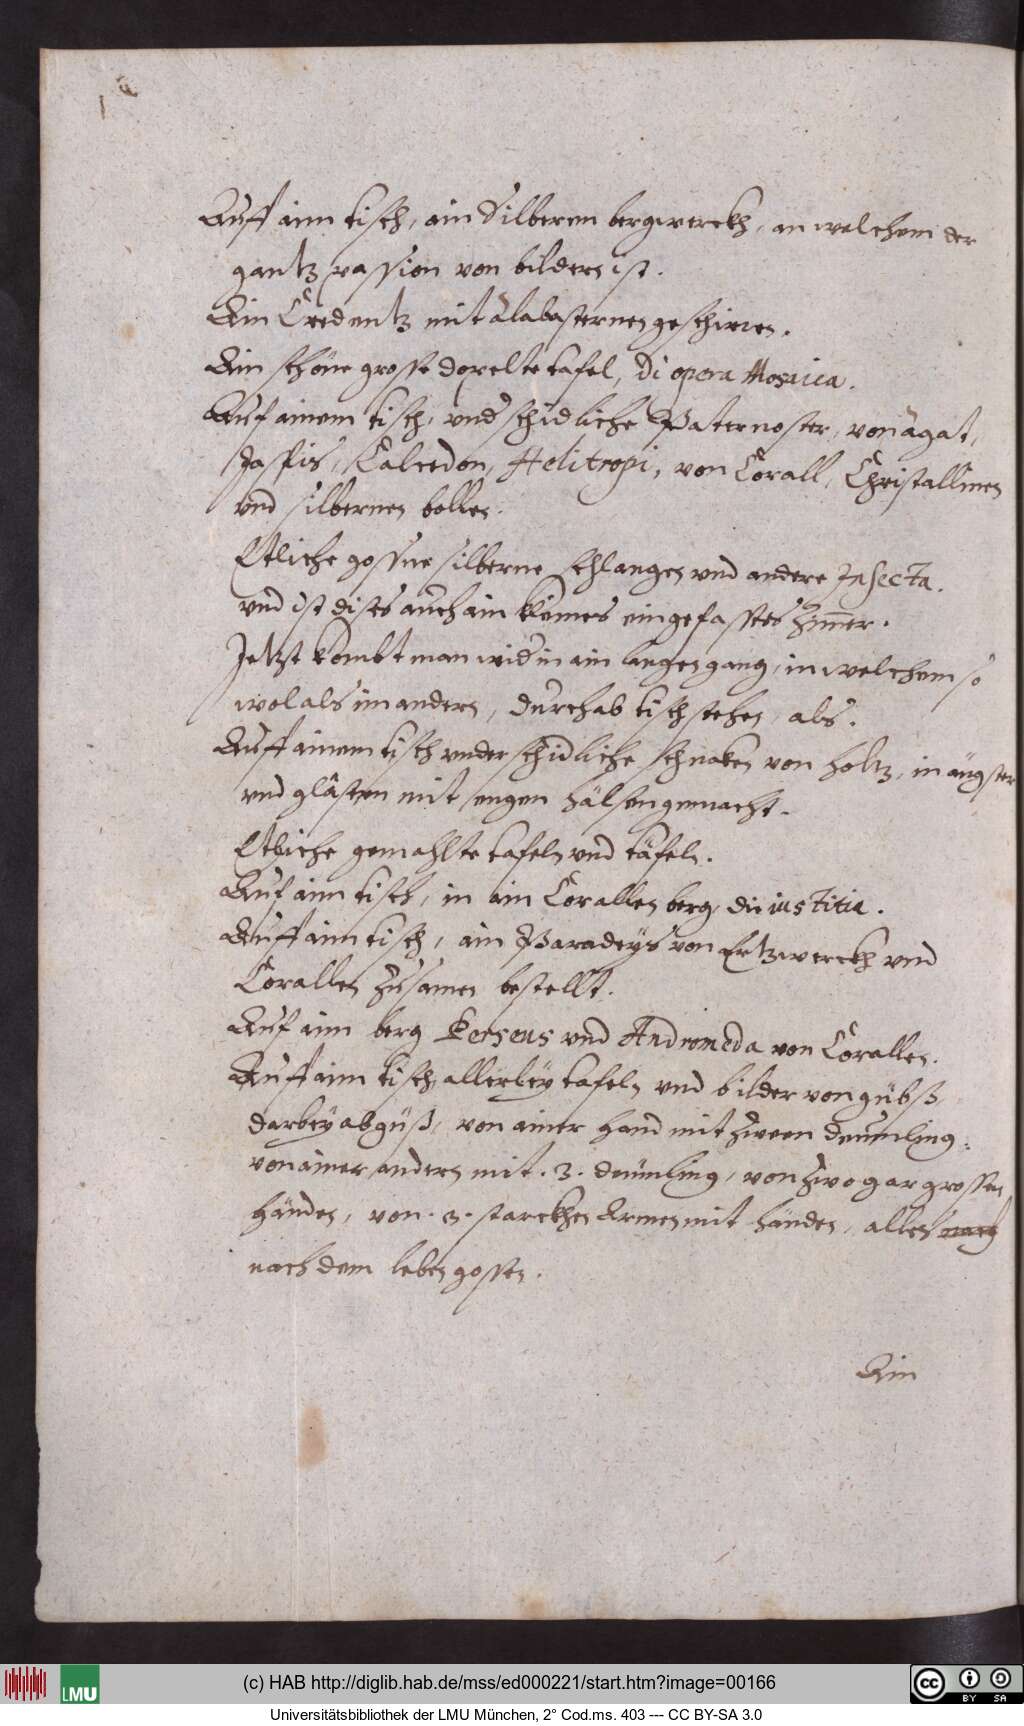 Auff aim tisch, ain Silberen bergwerckh, an welchem der
gantz passion von bildern ist.
Ain Credentz mit alabasternen geschirren.
Ain schöne grosse dopelte tafel, Di opera Mosaica.
Auf ainem tisch, vnd schidliche Paternoster, von agat,
Jaspis, Calcedon, Helitropi, von Corall, Christallinen
vnd silbernen bollen.
Etliche gossne silberne schlangen vnd andere Insecta.
vnd ist dises auch ain kleines eingefasstes Zimer.
Jetzst kombt man wid in ain langen gang, in welchem so
wol als im andern, durchab tisch stehen, als.
Auff ainem tisch vnderschidliche schnaken von holtz, in ängster
vnd gläsern mit engen hälsen gemacht.
Etliche gemahlte tafeln vnd täfeln.
Auf aim tisch, in ain Corallen berg, die iustitia.
Auff aim tisch, ain Paradeys von Ertzwerckh vnd
Corallen zusamen bestellt.
Auf aim berg Perseus vnd Andromeda von Corallen.
Auff aim tisch, allerley tafeln vnd bilder von gübß,
darbey abgüß, von ainer hand mit zween deumling,
von ainer andern mit .3. deumling, von zwo gar grossen
händen, von .3. starckhen Armen mit händen, alles nach
nach dem leben gossen.
Ain
(c) HAB http://diglib.hab.de/mss/ed000221/start.htm?image=00166
LMU
BY SA
Universitätsbibliothek der LMU München, 2° Cod.ms. 403 --- CC BY-SA 3.0